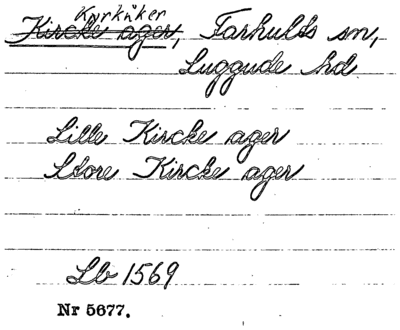 Kyrkåker
Kircke ager, Farhults sn,
Luggude hd
Lille Kircke ager
Store Kircke ager
Lb 1569
Nr 5677.